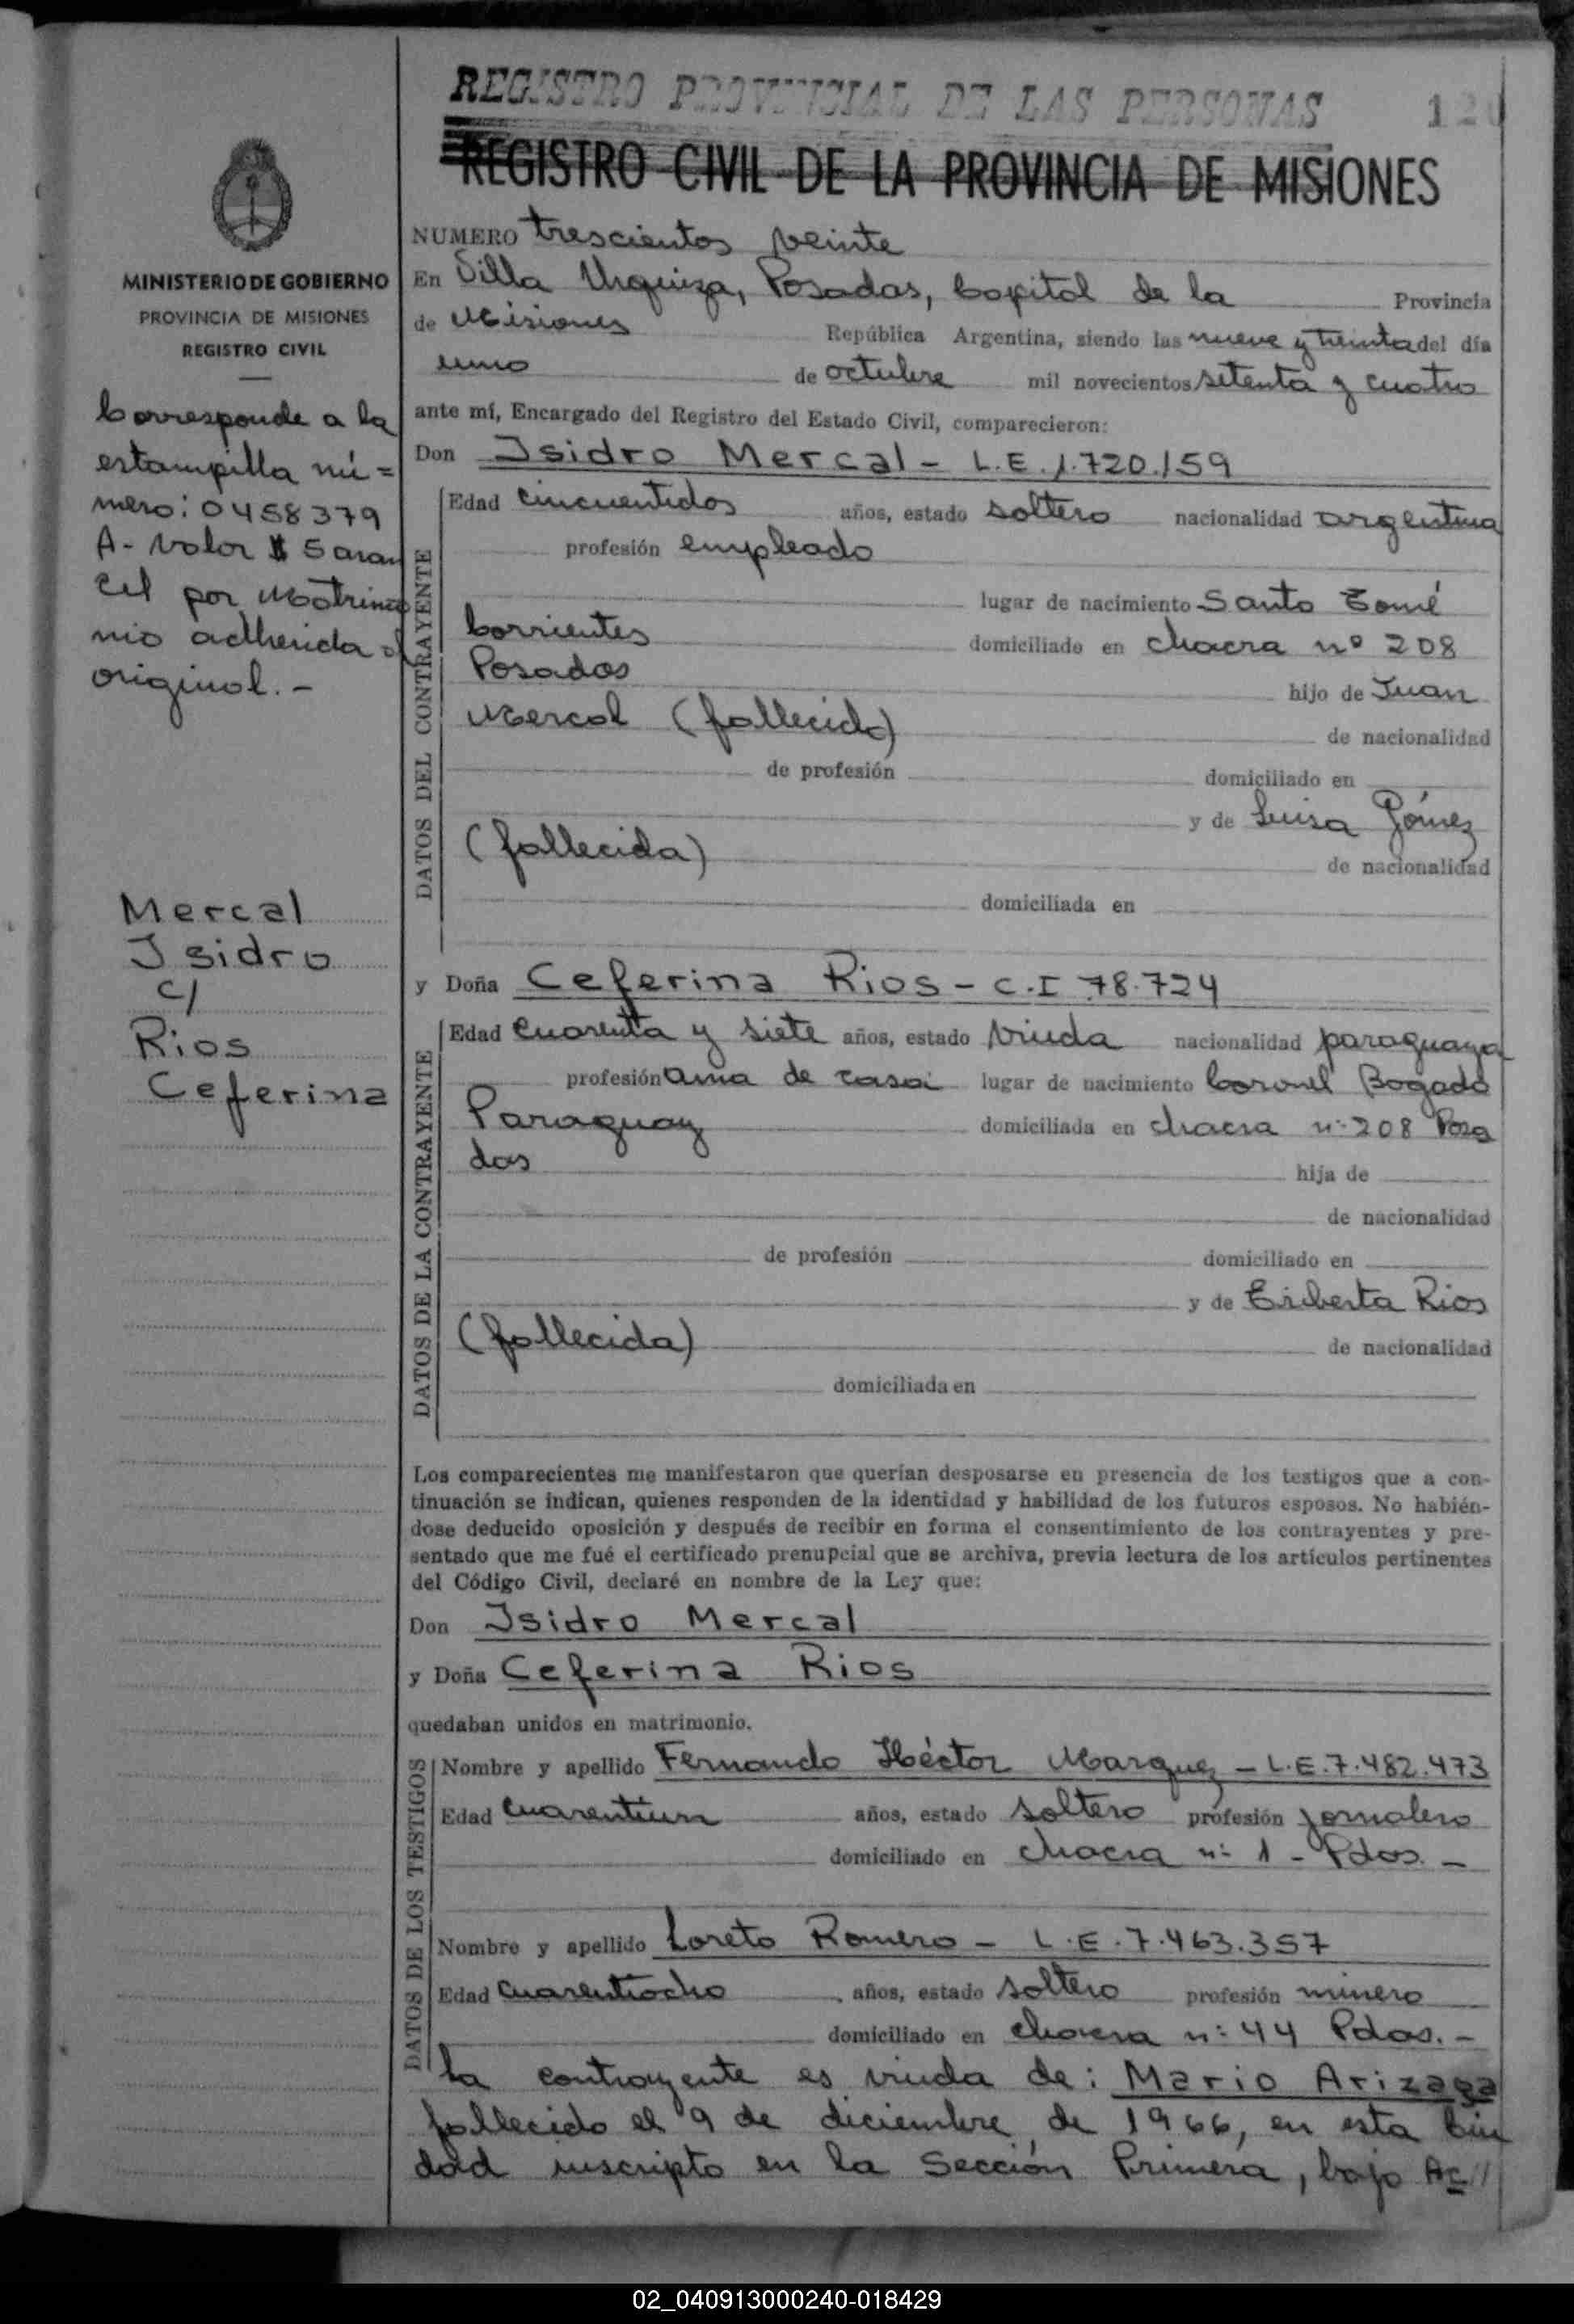 REGISTRO PROVINCIAL DE LAS PERSONAS 120
REGISTRO CIVIL DE LA PROVINCIA DE MISIONES
MINISTERIO DE GOBIERNO
PROVINCIA DE MISIONES
REGISTRO CIVIL
Corresponde a la
estampilla nú=
mero: 0458379
A- Valor $ 5 aran
cel por Matrimo
nio adherida al
original.-
Mercal
Isidro
c/
Rios
Ceferina
NUMERO trescientos veinte
En Villa Urquiza, Posadas, Capital de la Provincia
de Misiones República Argentina, siendo las nueve y treinta del día
uno de octubre mil novecientos setenta y cuatro
ante mí, Encargado del Registro del Estado Civil, comparecieron:
Don Isidro Mercal - L.E.1.720.159
DATOS DEL CONTRAYENTE
Edad cincuentidos años, estado soltero nacionalidad argentina
profesión empleado
lugar de nacimiento Santo Tomé
Corrientes domiciliado en chacra nº 208
Posadas hijo de Juan
Mercal (fallecido) de nacionalidad
de profesión domiciliado en
y de Luisa Gómez
(fallecida) de nacionalidad
domiciliada en
y Doña Ceferina Rios - C.I 78.724
DATOS DE LA CONTRAYENTE
Edad cuarenta y siete años, estado viuda nacionalidad paraguaya
profesión ama de casa lugar de nacimiento Coronel Bogado
Paraguay domiciliada en chacra n: 208 Posa
das hija de
de nacionalidad
de profesión domiciliado en
y de Eriberta Rios
(fallecida) de nacionalidad
domiciliada en
Los comparecientes me manifestaron que querían desposarse en presencia de los testigos que a con-
tinuación se indican, quienes responden de la identidad y habilidad de los futuros esposos. No habién-
dose deducido oposición y después de recibir en forma el consentimiento de los contrayentes y pre-
sentado que me fué el certificado prenupcial que se archiva, previa lectura de los artículos pertinentes
del Código Civil, declaré en nombre de la Ley que:
Don Isidro Mercal
y Doña Ceferina Rios
quedaban unidos en matrimonio.
DATOS DE LOS TESTIGOS
Nombre y apellido Fernando Héctor Marquez - L.E.7.482.473
Edad cuarentiun años, estado soltero profesión jornalero
domiciliado en chacra n: 1 - Pdas. -
Nombre y apellido Loreto Romero - L.E.7.463.357
Edad cuarentiocho años, estado soltero profesión minero
domiciliado en chacra n: 44 Pdas. -
La contrayente es viuda de: Mario Arizaga
fallecido el 9 de diciembre de 1966, en esta Ciu
dad inscripto en la Sección Primera, bajo Ac//
02_040913000240-018429